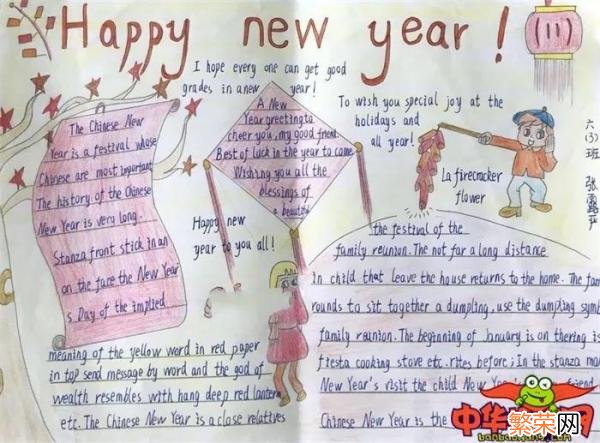 Happy new year!
(11)
I hope every one can get good
grades in a new year!
The Chinese New
Year is a festival whose
Chinese are most important
The history of the Chinese
New Year is very long.
Stanza front stick in an
on the face the New Year
s. Day of the implied
meaning of the yellow word in red paper
in top send message by word and the god of
wealth resembles with hang deep red lantern
etc. The Chinese New Year is a close relatives
A New
Year greeting to
cheer you, my good friend.
Best of luck in the year to come
Wishing you all the
blessings of
a beautiful
Happy new
year to you all!
To wish you special joy at the
holidays and
all year!
La firecracker
flower
六(3)班
the festival of the
family reunion. The not far a long distance
in child that leave the house returns to the home. The fam
rounds to sit together a dumpling, use the dumpling symb
family reunion. The beginning of January is on thering is
fiesta cooking stove etc. rites before; In the stanza ma
New Year's visit the child New Year
Chinese New Year is the
中华
繁荣网